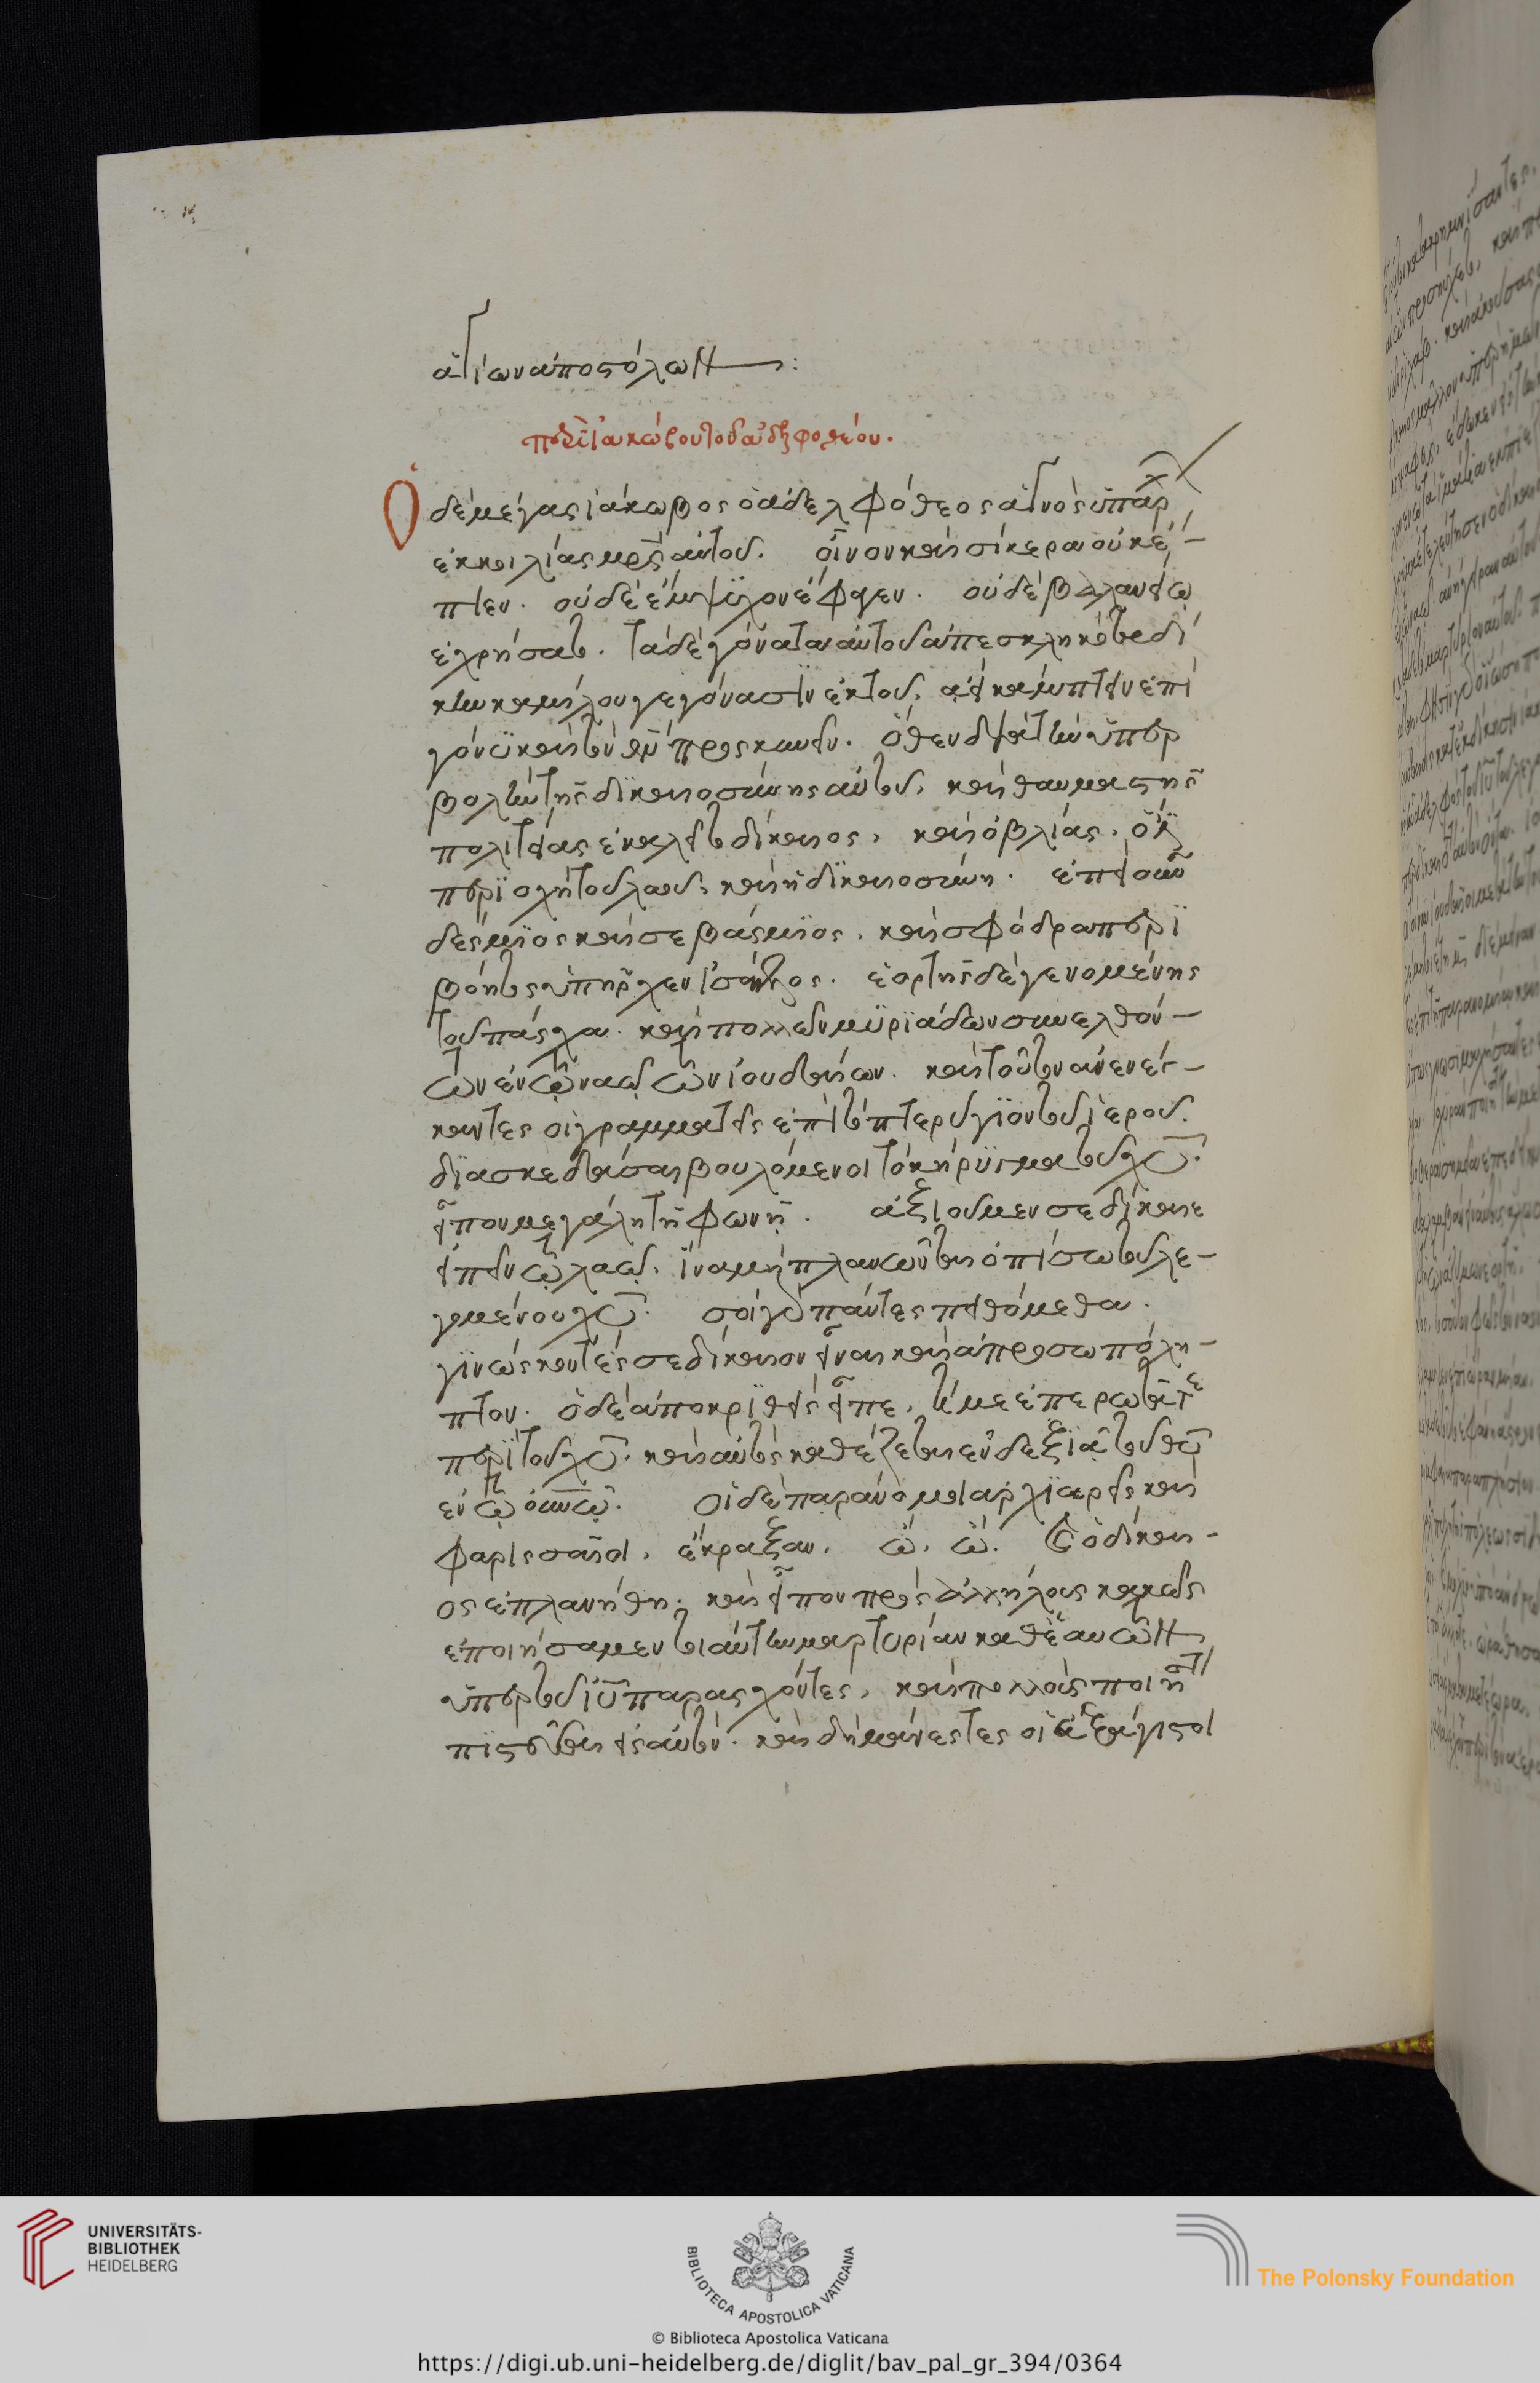 ἁγίων ἀποστόλων:
περὶ ἰακώβου τοῦ ἀδελφοθέου.
Ὁ δὲ μέγας ἰάκωβος ὁ ἀδελφόθεος ἁγνὸς ὑπάρχ
ἐκ κοιλίας μρς αὐτοῦ. οἶνον καὶ σίκερα οὐκ ἔ-
πιεν. οὐδὲ ἔμψυχον ἔφαγεν. οὐδὲ βαλανείω
ἐχρήσατο. τὰ δὲ γόνατα αὐτοῦ ἀπεσκληκότα δί
κην καμήλου γεγόνασιν ἐκ τοῦ ἀεὶ κάμπτειν ἐπὶ
γόνυ καὶ τὸν θν προσκυνεῖν. ὅθεν διὰ τὴν ὑπερ
βολὴν τῆς δικαιοσύνης αὐτοῦ, καὶ θαυμαστῆς
πολιτείας ἐκαλεῖτο δίκαιος, καὶ ὀβλίας, ὅ ἐστι
περιοχὴ τοῦ λαοῦ, καὶ ἡ δικαιοσύνη. ἐπεὶ οὖν
δέσμιος καὶ σεβάσμιος, καὶ σφόδρα περι
βόητος ὑπῆρχεν ἰσάγγελος. ἑορτῆς δὲ γενομένης
τοῦ πάσχα. καὶ πολλῶν μυριάδων συνελθόν-
των ἐν τῶ ναῶ τῶν ἰουδαίων. καὶ τοῦτον ἀνενέγ-
καντες οἱ γραμματεῖς ἐπὶ τὸ πτερύγιον τοῦ ἱεροῦ.
διασκεδάσαι βουλόμενοι τὸ κήρυγμα τοῦ χυ.
εἶπον μεγάλη τῆ φωνῆ. ἀξιοῦμεν σε δίκαιε
εἰπεῖν τῶ λαῶ, ἵνα μὴ πλανῶνται ὀπίσω τοῦ λε-
γομένου χυ. σοὶ γὰρ πάντες πειθόμεθα.
γινώσκοντές σε δίκαιον εἶναι καὶ ἀπροσωπόλη-
πτον. ὁ δὲ ἀποκριθεὶς εἶπε, τί με ἐπερωτᾶτε
περὶ τοῦ χυ. καὶ αὐτὸς κάθεζεται ἐν δεξιᾶ τοῦ θυ
ἐν τῶ οὐνῶ. οἱ δὲ παράνομοι ἀρχιερεῖς καὶ
φαρισαῖοι, ἔκραξαν, ὢ, ὢ. καὶ ὁ δίκαι-
ος ἐπλανήθη. καὶ εἶπον πρὸς ἀλλήλους κακῶς
ἐποιήσαμεν τοιαύτην μαρτυρίαν καθ' ἑαυτῶν
ὑπὲρ τοῦ ιυ παρασχόντες, καὶ πολλοὺς ποιῆσαι
πιστεῦσαι εἰς αὐτόν. καὶ δὴ μανέντες οἱ ἐξάγιστοι
UNIVERSITÄTS-
BIBLIOTHEK
HEIDELBERG
BIBLIOTECA APOSTOLICA VATICANA
The Polonsky Foundation
© Biblioteca Apostolica Vaticana
https://digi.ub.uni-heidelberg.de/diglit/bav_pal_gr_394/0364